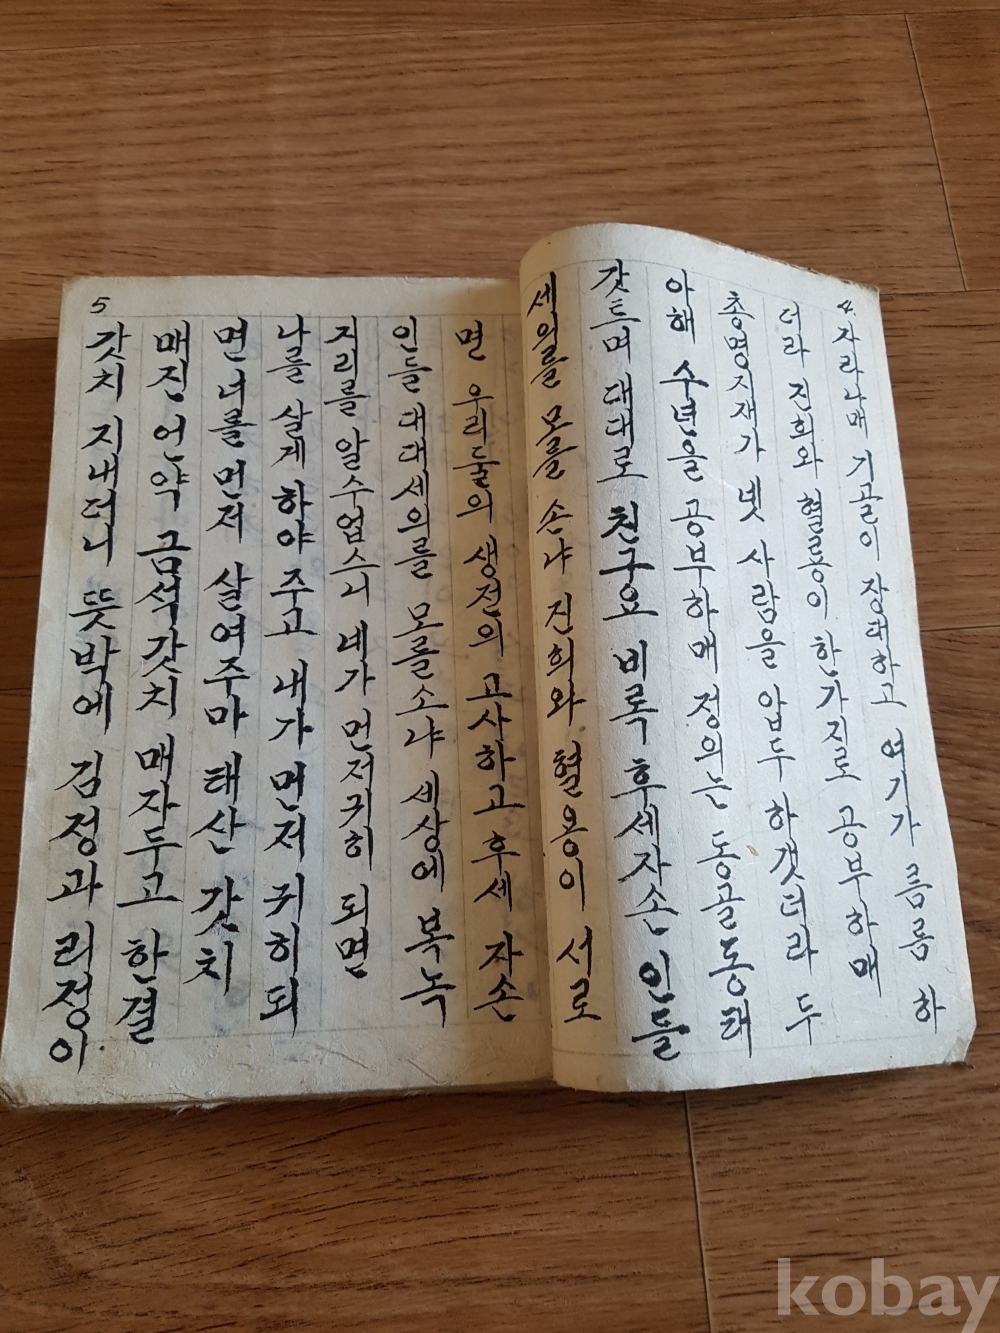 4.
자라나매 기골이 장대하고 여기가 름름 하
더라 진희와 혈룡이 한가지로 공부하매
총명지재가 넷 사람을 압두 하갯더라 두
아해 수년을 공부하매 정의는 동골동태
갓트며 대대로 친구요 비록 후세자손인들
세의를 모를 손냐 진희와 혈용이 서로
면 우리둘의 생전의 고사하고 후세 자손
인들 대대세의를 모를소냐 세상에 복녹
지리를 알수업스니 네가 먼저귀히 되면
나를 살게 하야 주고 내가 먼저 귀히되
면 너를 먼저 살여주마 태산 갓치
매진 언약 금석갓치 매자두고 한결
갓치 지내더니 뜻박에 김정과 리정이
5
kobay